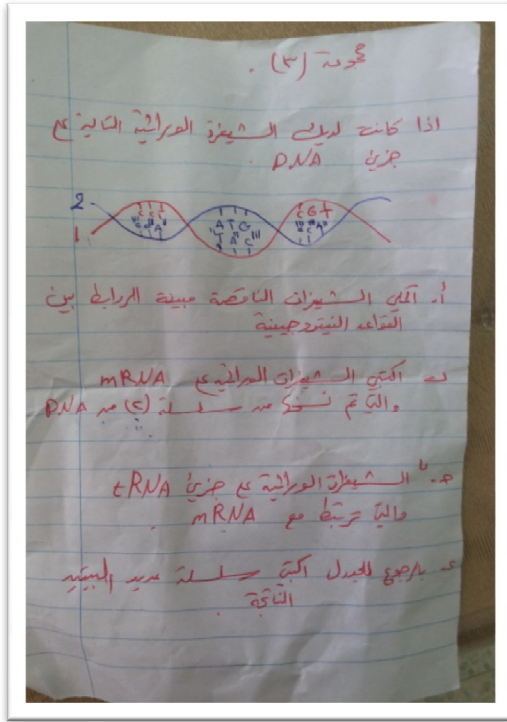 مجموعة (٣) .
اذا كانت لديك الشيفرة الوراثية التالية على
جزيئ DNA
2
1
A T G
T A C
C G T
أ. أكملي الشيفرات الناقصة مبينة الروابط بين
القواعد النيتروجينية
ب اكتبي الشيفرات الوراثية على mRNA
والتي تم نسخها من سلسلة (٢) من DNA
جـ. الشيفرة الوراثية على جزيئ tRNA
والتي ترتبط مع mRNA
د بالرجوع للجدول اكتبي سلسلة عديد الببتيد
الناتجة .